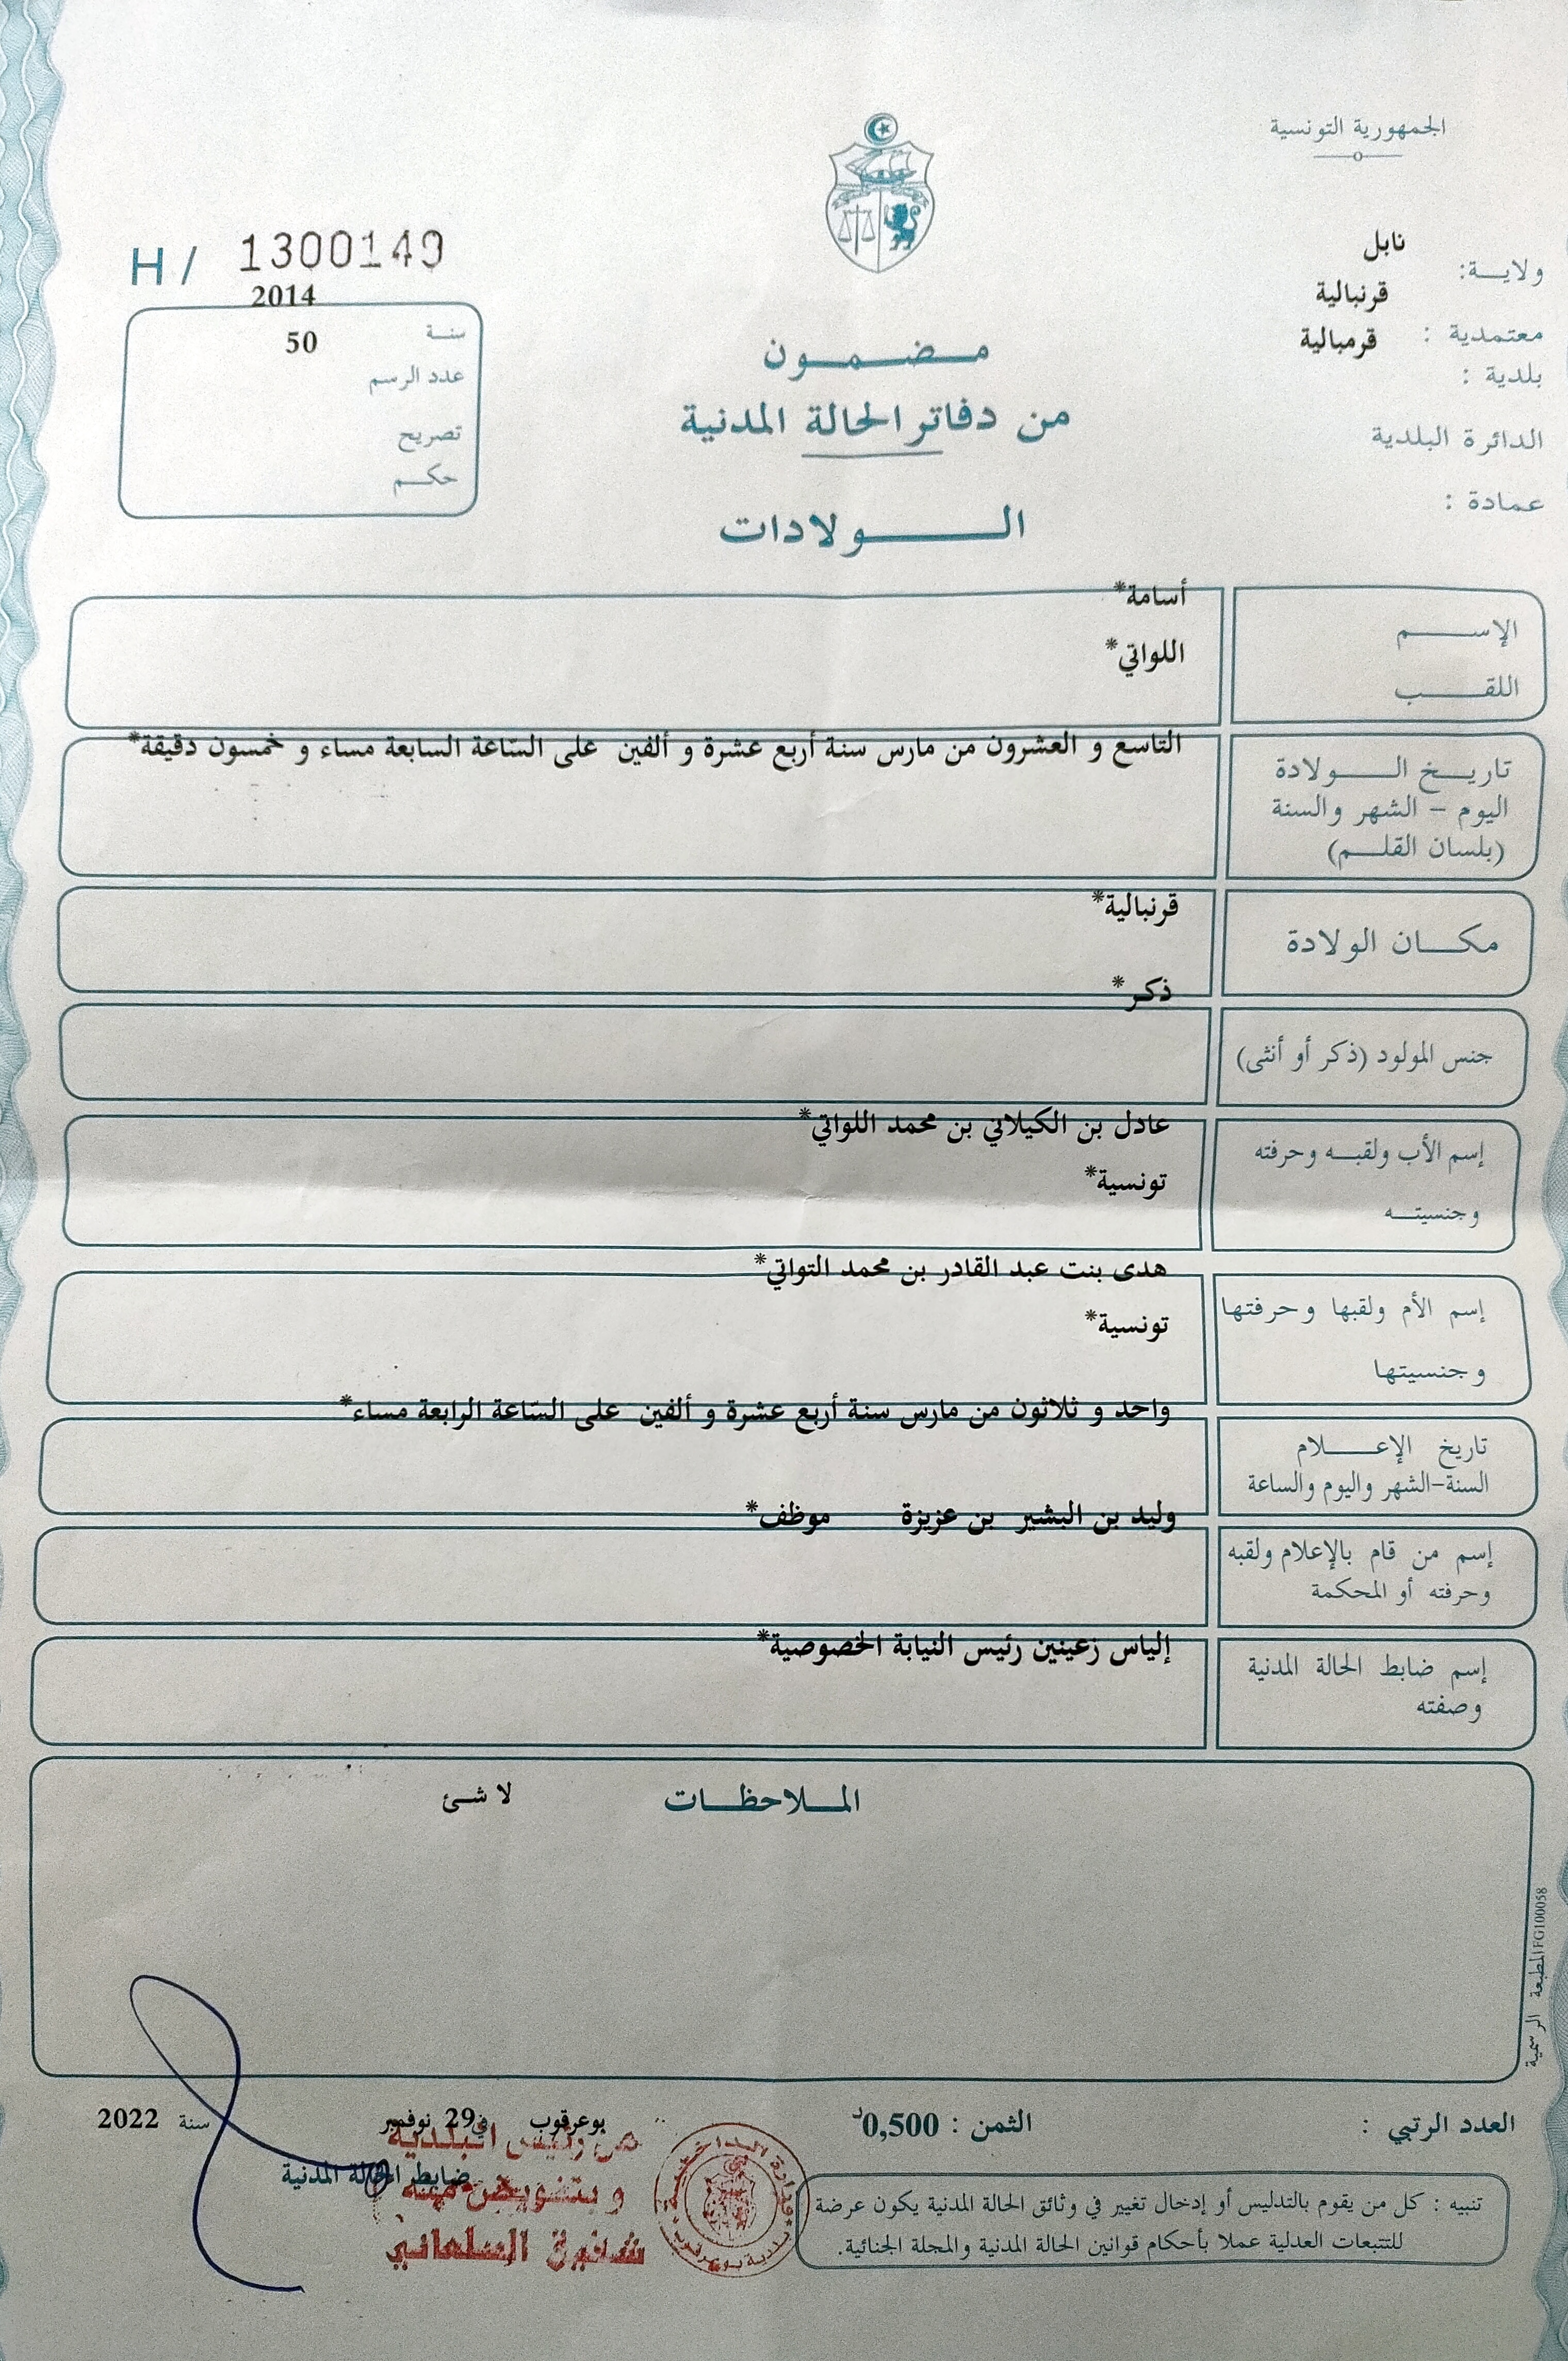 الجمهورية التونسية
ولاية: نابل
معتمدية : قرنبالية
بلدية : قرمبالية
الدائرة البلدية
عمادة :
H / 1300149
سنة 2014
عدد الرسم 50
تصريح
حكم
مضمون
من دفاتر الحالة المدنية
الولادات
الإسم أسامة*
اللقب اللواتي*
تاريخ الولادة التاسع و العشرون من مارس سنة أربع عشرة و ألفين على السّاعة السابعة مساء و خمسون دقيقة*
اليوم – الشهر والسنة
(بلسان القلم)
مكان الولادة قرنبالية*
جنس المولود (ذكر أو أنثى) ذكر*
إسم الأب ولقبه وحرفته عادل بن الكيلاني بن محمد اللواتي*
وجنسيته تونسية*
إسم الأم ولقبها وحرفتها هدى بنت عبد القادر بن محمد التواتي*
وجنسيتها تونسية*
تاريخ الإعلام واحد و ثلاثون من مارس سنة أربع عشرة و ألفين على السّاعة الرابعة مساء*
السنة-الشهر واليوم والساعة
إسم من قام بالإعلام ولقبه وليد بن البشير بن عزيزة موظف*
وحرفته أو المحكمة
إسم ضابط الحالة المدنية إلياس زعينين رئيس النيابة الخصوصية*
وصفته
الملاحظات لا شئ
المطبعة الرسمية FG100058
العدد الرتبي :
الثمن : 0,500د
بوعرقوب في 29 نوفمبر سنة 2022
ضابط الحالة المدنية
عن رئيس البلدية
و بتفويض منه
شفيق السلماني
تنبيه : كل من يقوم بالتدليس أو إدخال تغيير في وثائق الحالة المدنية يكون عرضة
للتتبعات العدلية عملا بأحكام قوانين الحالة المدنية والمجلة الجنائية.